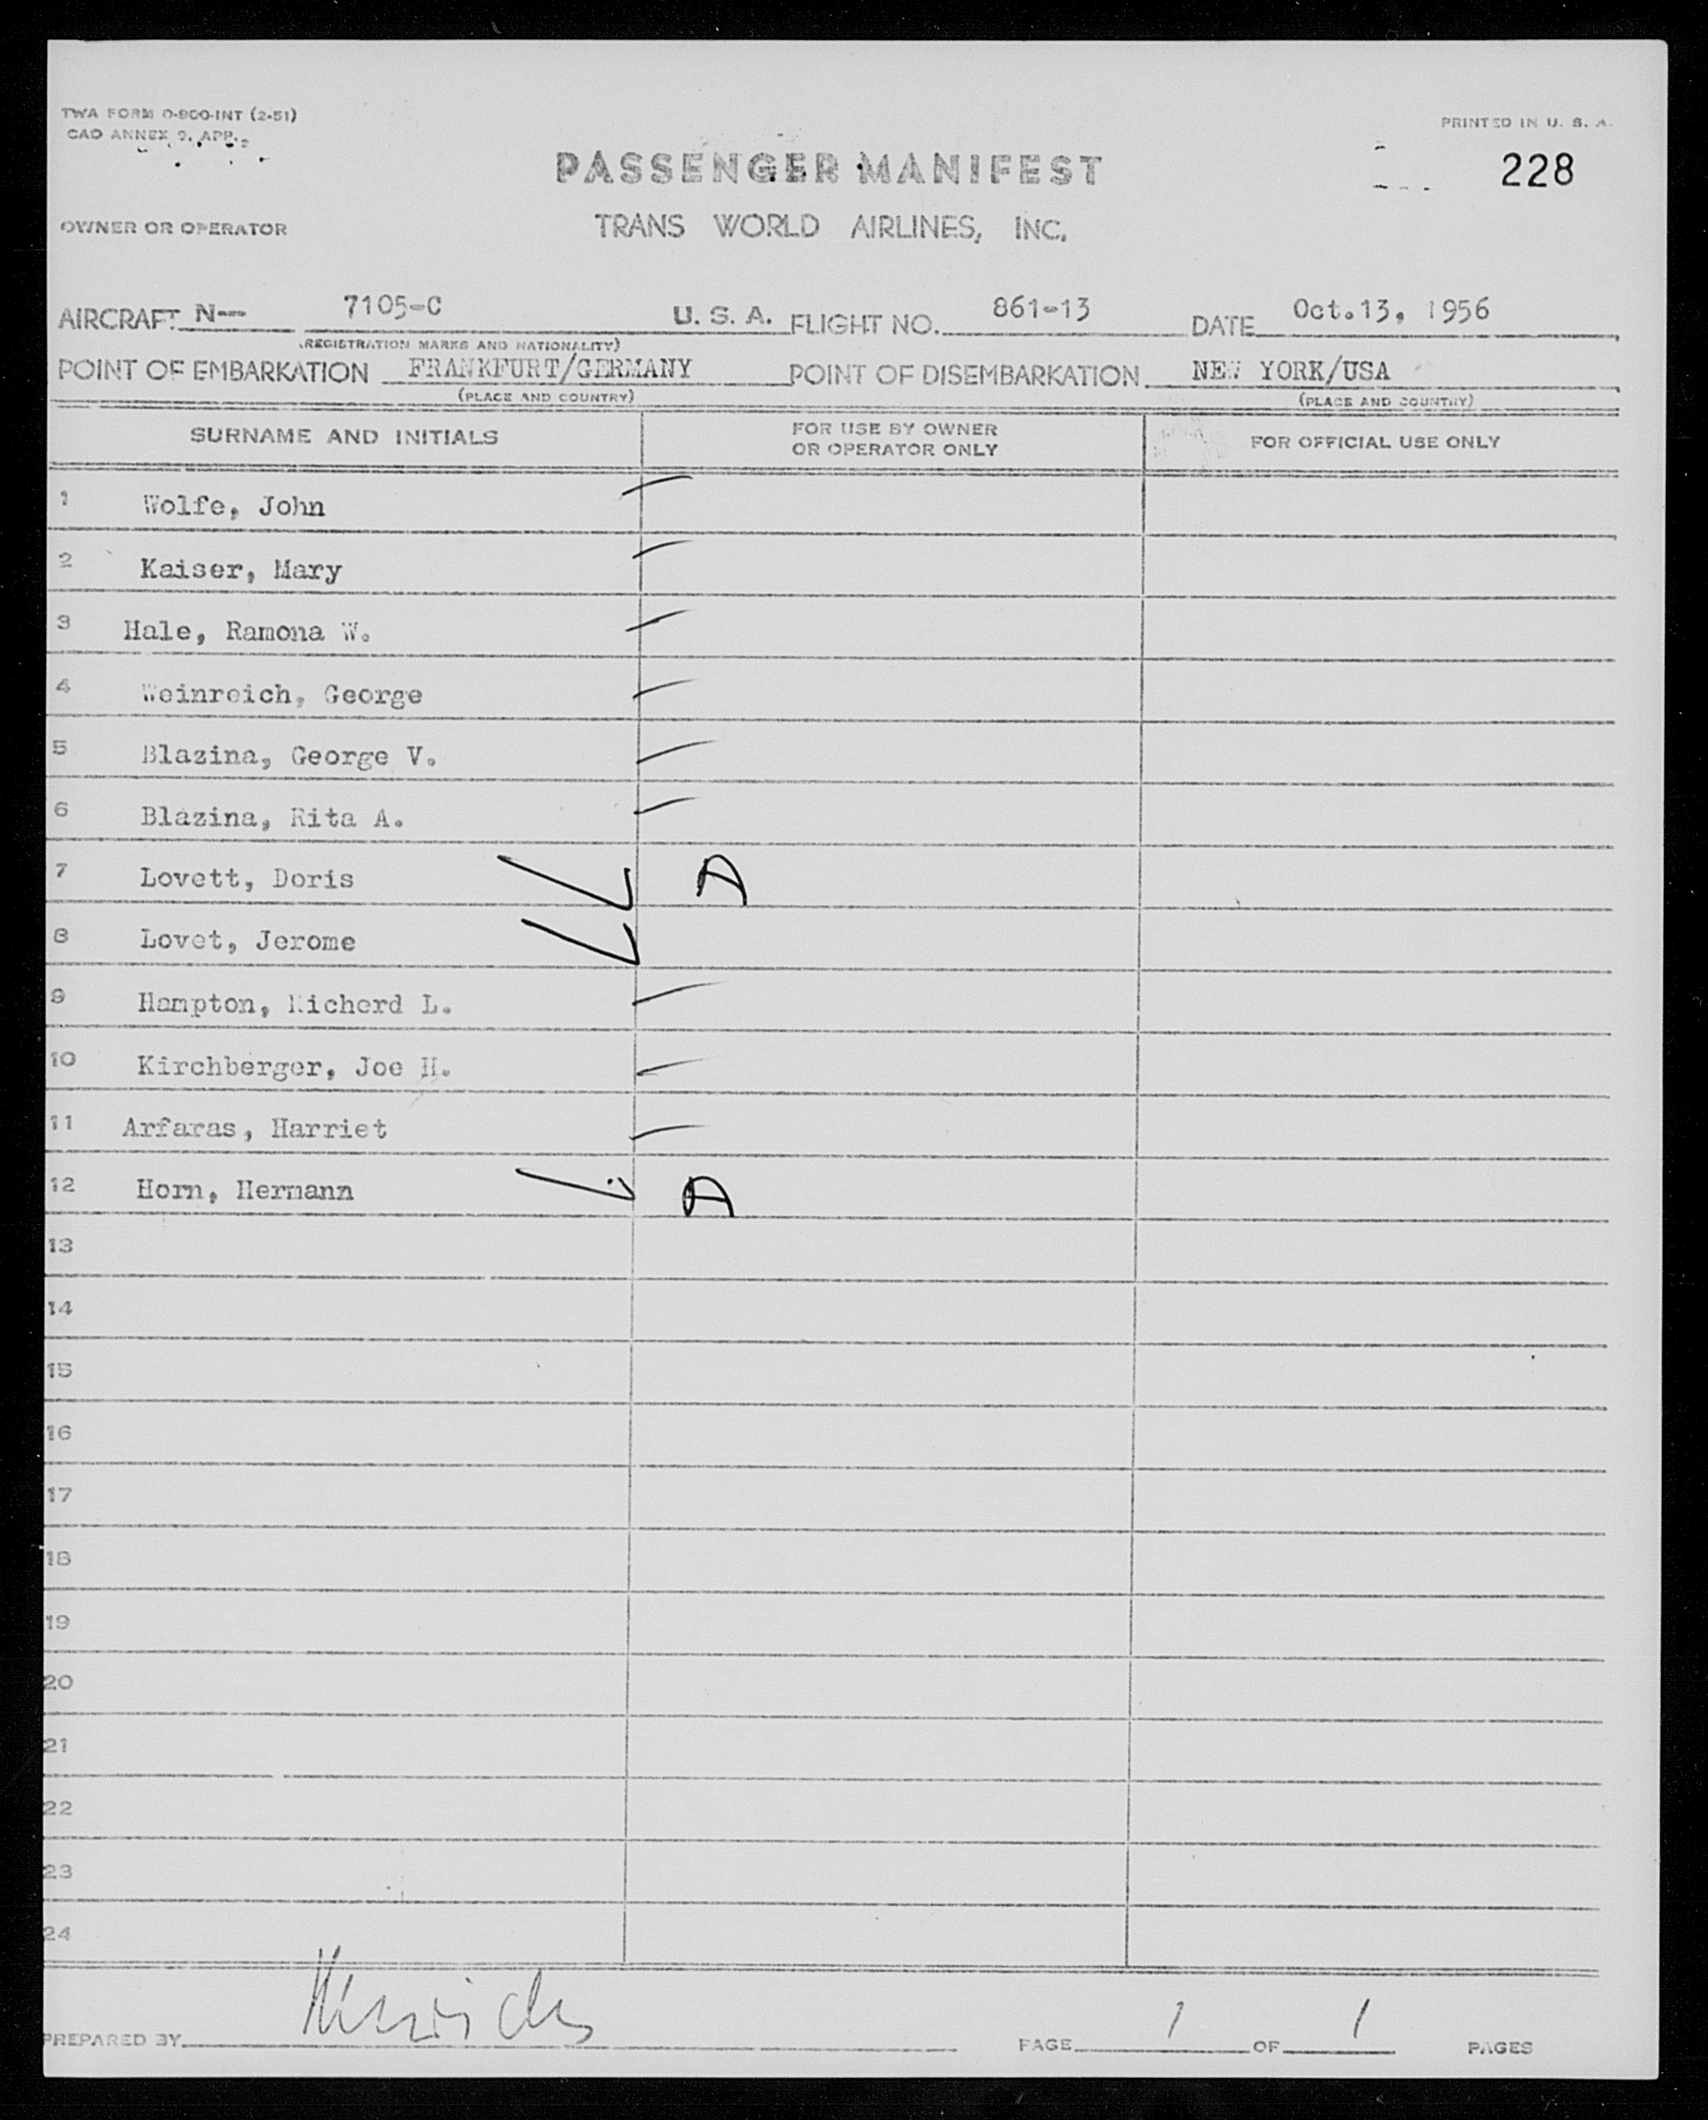 TWA FORM O-800-INT (2-51)
CAO ANNEX 9, APP.
PRINTED IN U. S. A.
PASSENGER MANIFEST
228
OWNER OR OPERATOR
TRANS WORLD AIRLINES, INC.
AIRCRAFT N-- 7105-C U. S. A. FLIGHT NO. 861-13 DATE Oct.13, 1956
(REGISTRATION MARKS AND NATIONALITY)
POINT OF EMBARKATION FRANKFURT/GERMANY POINT OF DISEMBARKATION NEW YORK/USA
(PLACE AND COUNTRY) (PLACE AND COUNTRY)
SURNAME AND INITIALS FOR USE BY OWNER OR OPERATOR ONLY FOR OFFICIAL USE ONLY
1 Wolfe, John
2 Kaiser, Mary
3 Hale, Ramona W.
4 Weinreich, George
5 Blazina, George V.
6 Blazina, Rita A.
7 Lovett, Doris A
8 Lovet, Jerome
9 Hampton, Richerd L.
10 Kirchberger, Joe H.
11 Arfaras, Harriet
12 Horn, Hermann A
13
14
15
16
17
18
19
20
21
22
23
24
PREPARED BY PAGE 1 OF 1 PAGES